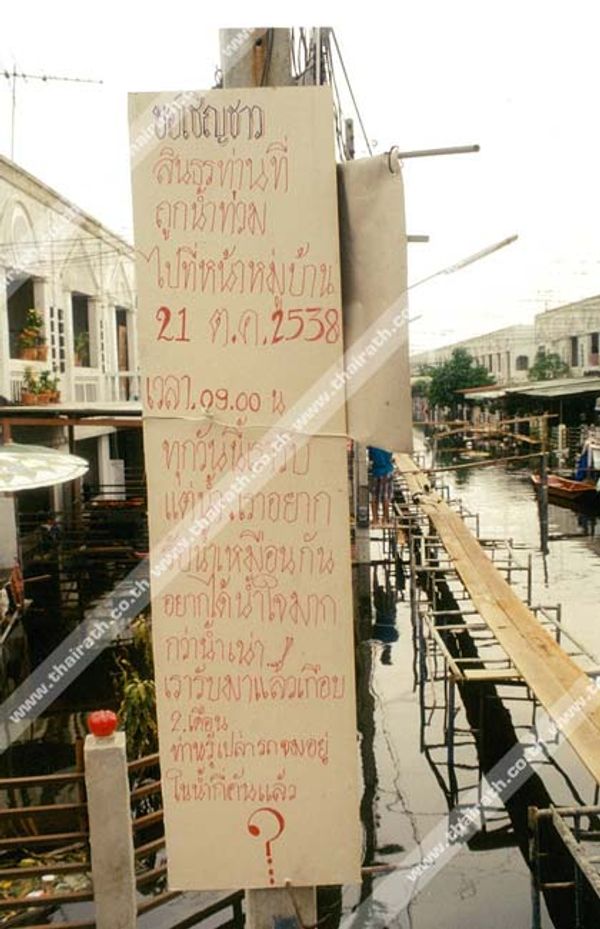 ขอเชิญชาว
สินธรท่านที่
ถูกน้ำท่วม
ไปที่หน้าหมู่บ้าน
21 ต.ค.2538
เวลา.09.00 น
ทุกวันนี้เรารับ
แต่น้ำ เราอยาก
รับน้ำเหมือนกัน
อยากได้น้ำใจมาก
กว่าน้ำเน่า
เรารับมาแล้วเกือบ
2.เดือน
ท่านรู้เปล่ารถจมอยู่
ในน้ำกี่คันแล้ว
?
www.thairath.co.th
www.thairath.co.th
www.thairath.co.th